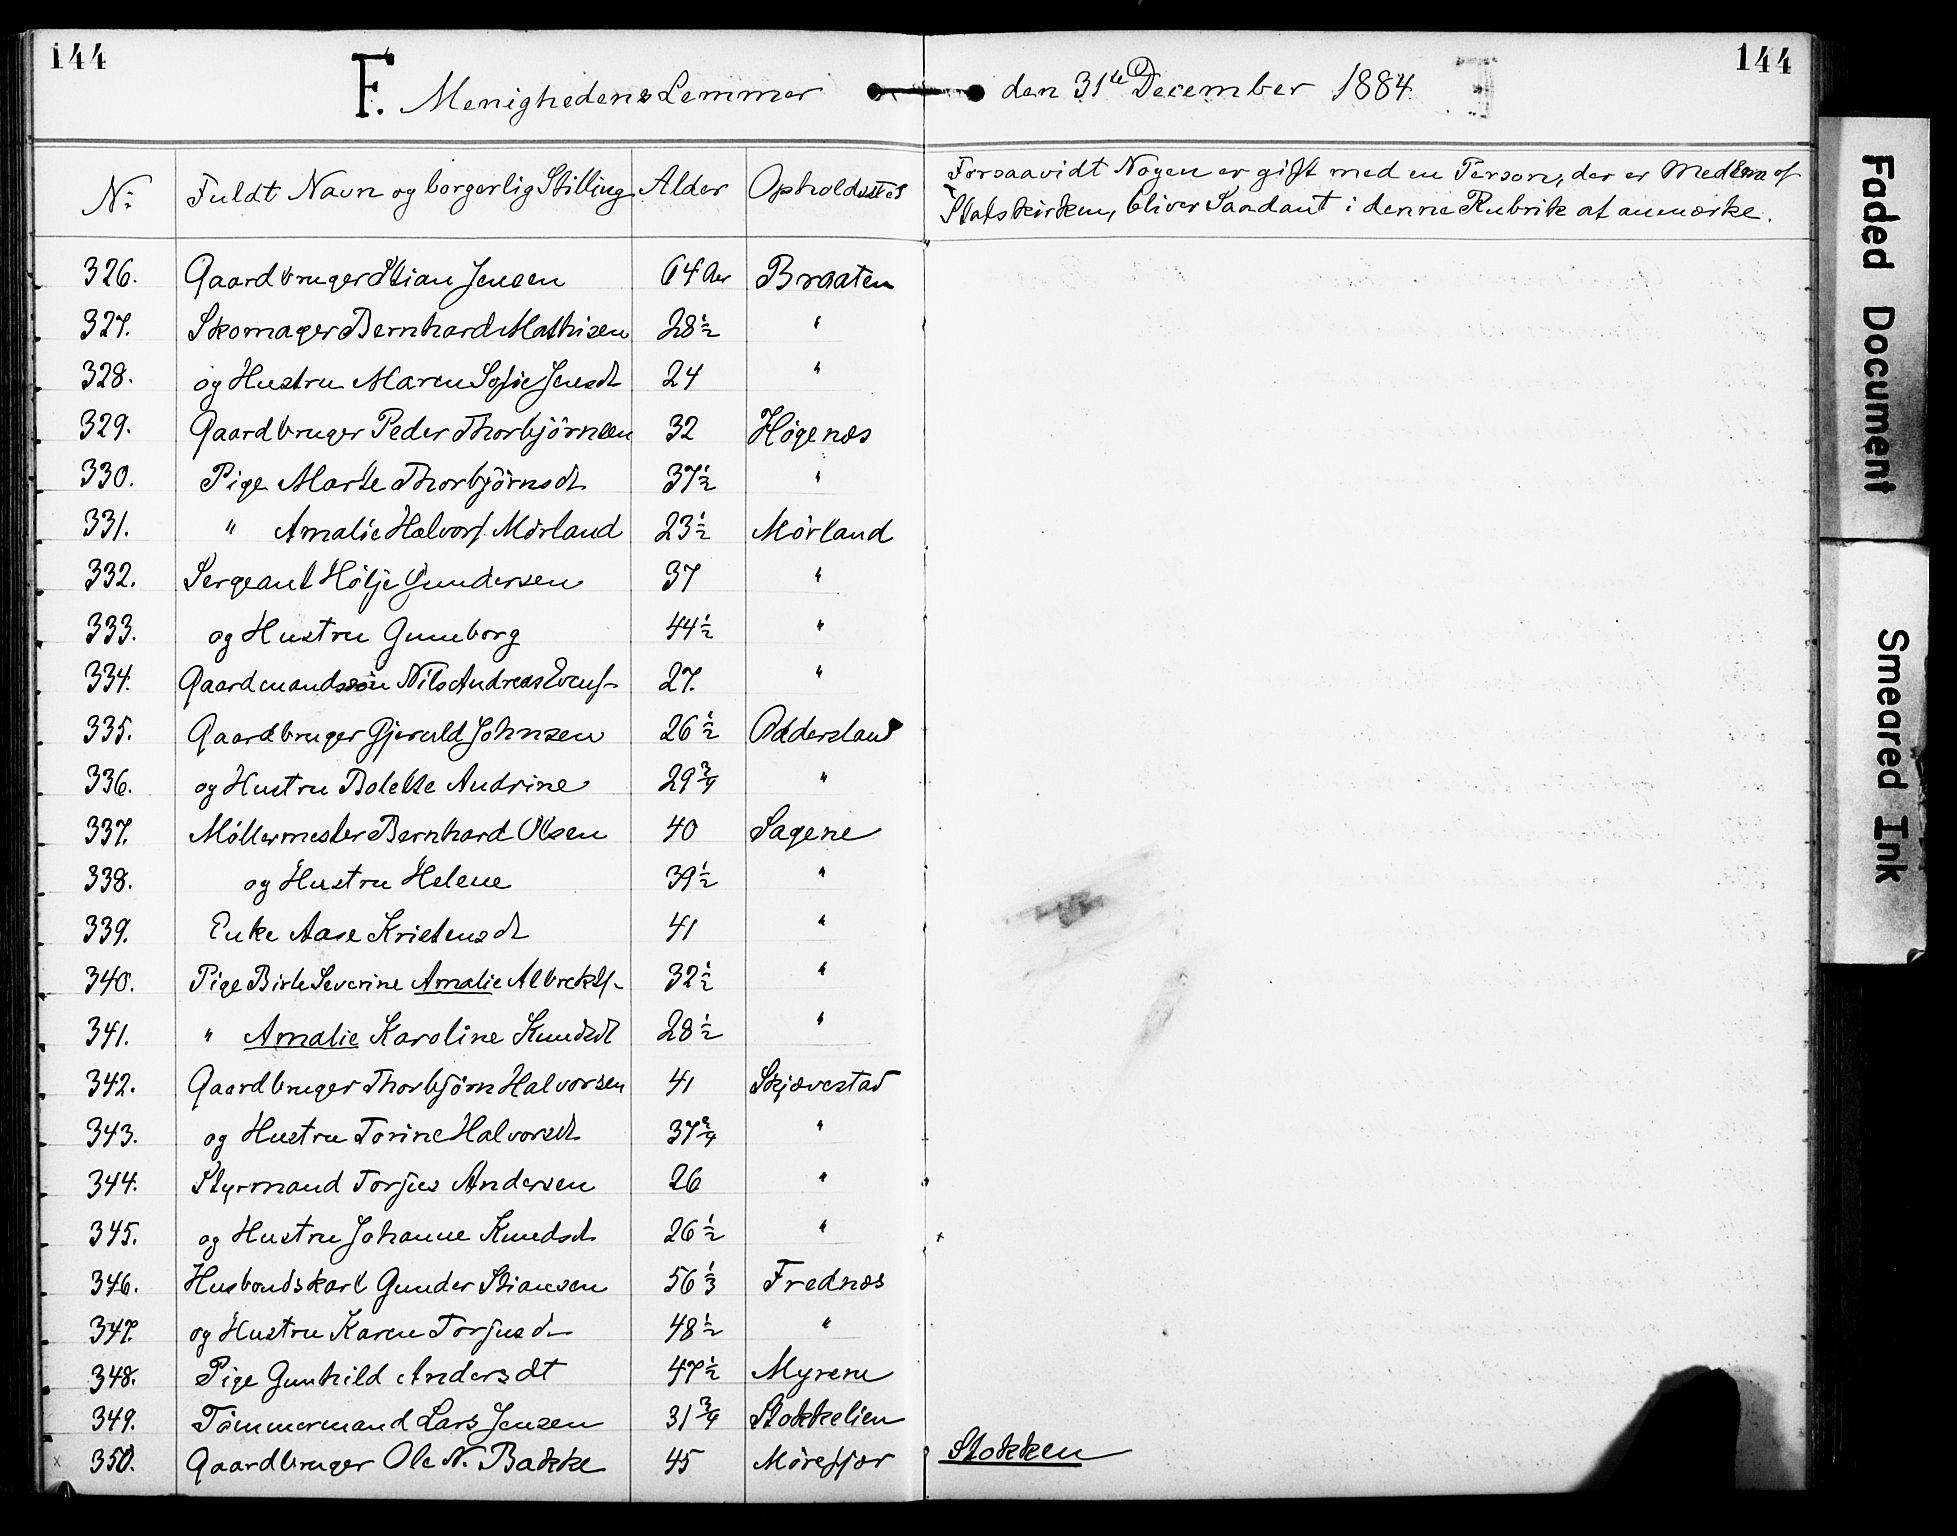 144 144
F. Menighedens Lemmer den 31te December 1884.
No Fuldt Navn og borgerlig Stilling Alder Opholdssted Forsaavidt Nogen er gift med en Person, der er Medlem af
Statskirken, bliver Saadant i denne Rubrik at anmærke.
326. Gaardbruger Stian Jensen 64 Aar Braaten
327. Skomager Bernhard Mathisen 28 1/2 "
328. og Hustru Maren Sofie Jensdt 24 "
329. Gaardbruger Peder Thorbjörnsen 32 Högenæs
330. Pige Marte Thorbjörnsdt 37 1/2 "
331. " Amalie Halvors. Mörland 23 1/2 Mörland
332. Sergeant Hölje Gundersen 37 "
333. og Hustru Gunborg 44 1/2 "
334. Gaardmandssön Nils Andreas Evens. 27. "
335. Gaardbruger Gjeruld Johnsen 26 1/2 Oddersland
336. og Hustru Bolette Andrine 29 3/4 "
337. Möllermester Bernhard Olsen 40 Sagene
338. og Hustru Helene 39 1/2 "
339. Enke Aase Kristensdt 41 "
340. Pige Birte Severine Amalie Albrekts. 32 1/2 "
341. " Amalie Karoline Knudsdt 28 1/2 "
342. Gaardbruger Thorbjörn Halvorsen 41 Skjævestad
343. og Hustru Torine Halvorsdt 37 3/4 "
344. Styrmand Torjus Andersen 26 "
345. og Hustru Johanne Knudsdt 26 1/2 "
346. Husbondskarl Gunder Stiansen 56 1/3 Frednæs
347. og Hustru Karen Torjusd 48 1/2 "
348. Pige Gunhild Andersdt 47 1/2 Myrene
349. Tömmermand Lars Jensen 31 3/4 Stokkelien
x 350. Gaardbruger Ole N. Bakke 45 Mörefjær Stokken
Faded Document
Smeared Ink